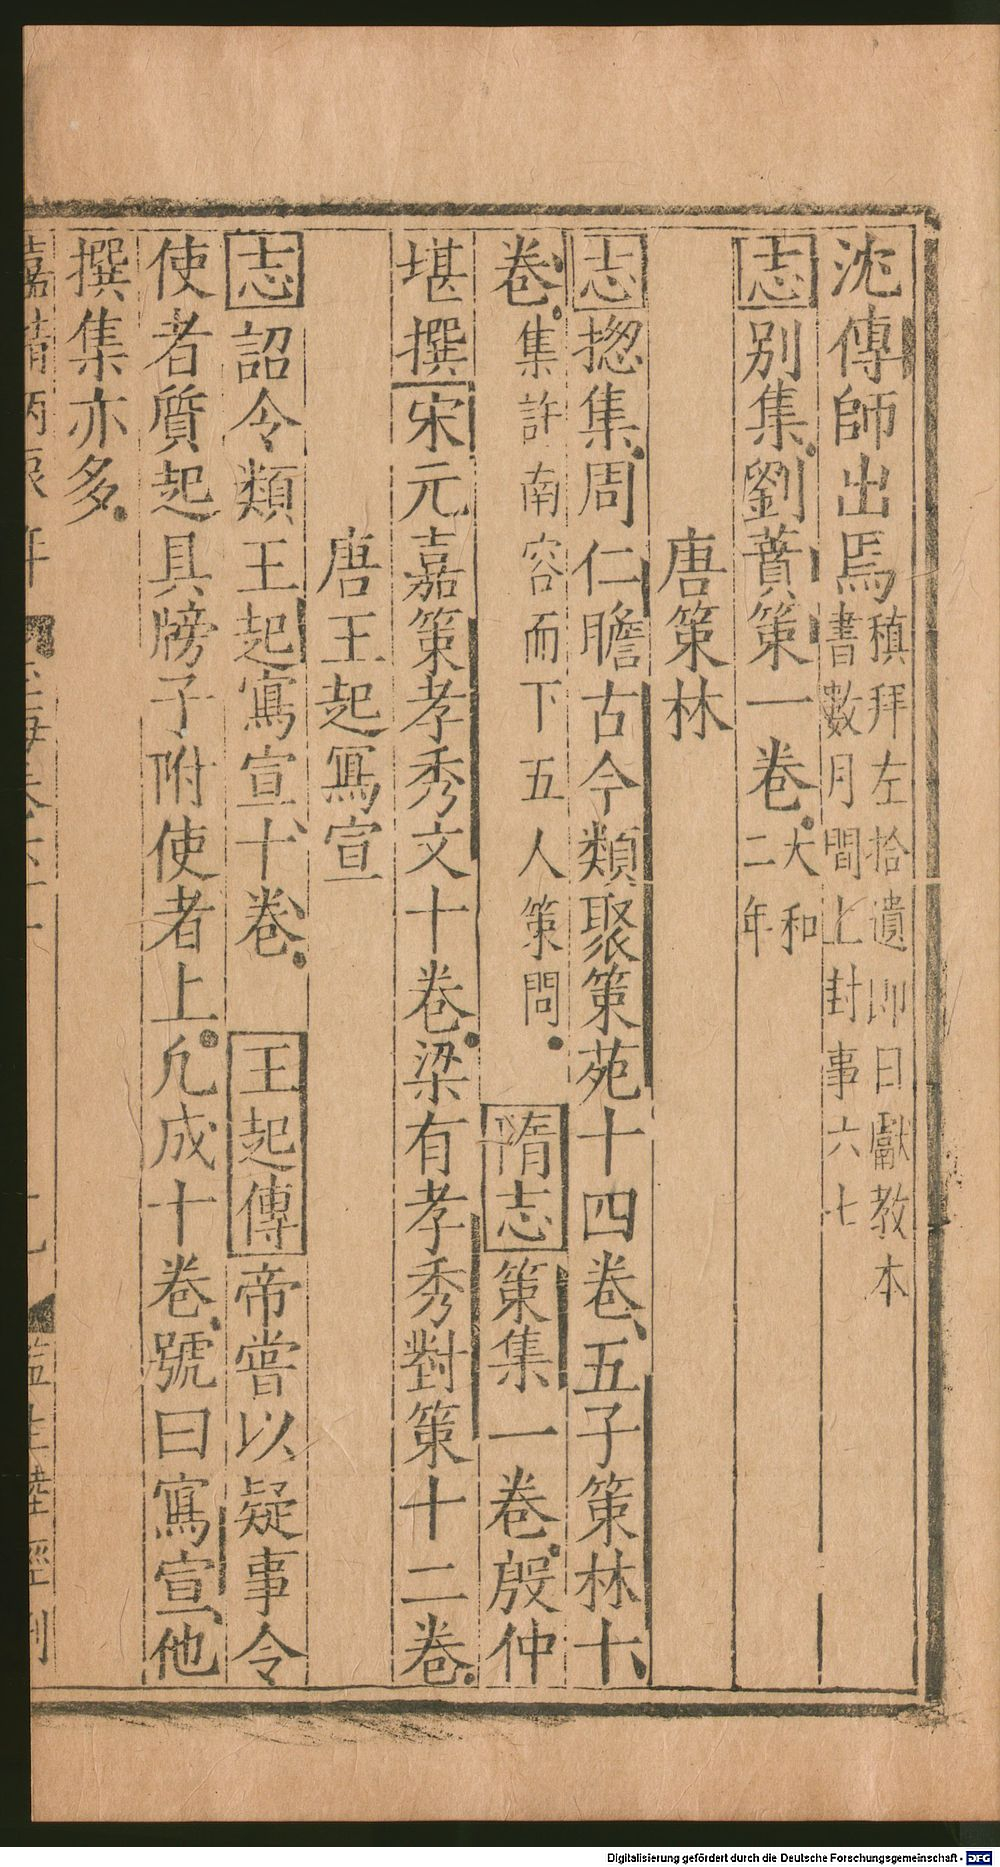 沈傳師出焉稹拜左拾遺即日獻教本
書數月間上封事六七
志別集劉蕡策一卷大和
二年
唐策林
志揔集周仁瞻古今類聚策苑十四卷五子策林十
卷集許南容而下五人策問 隋志策集一卷殷仲
堪撰宋元嘉策孝秀文十卷梁有孝秀對策十二卷
唐王起寫宣
志詔令類王起寫宣十卷 王起傳帝嘗以疑事令
使者質起具牓子附使者上凢成十卷號曰寫宣他
撰集亦多
嘉靖丙辰年 玉海卷六十一 十九 監生陸經刊
Digitalisierung gefördert durch die Deutsche Forschungsgemeinschaft - DFG